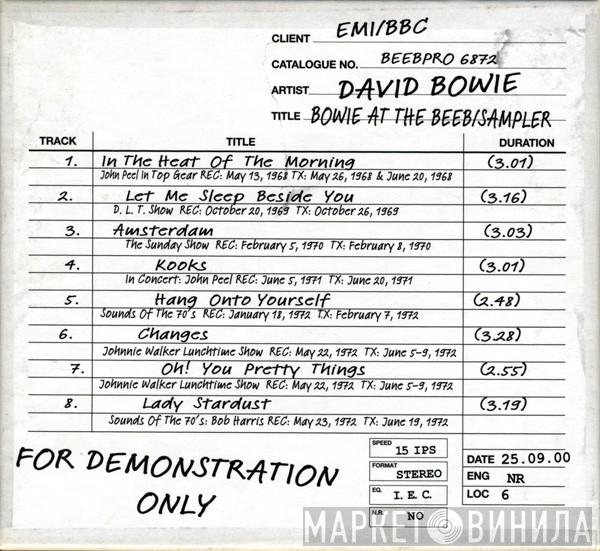 CLIENT EMI/BBC
CATALOGUE NO. BEEBPRO 6872
ARTIST DAVID BOWIE
TITLE BOWIE AT THE BEEB/SAMPLER
TRACK TITLE DURATION
1. In The Heat Of The Morning (3.01)
John Peel In Top Gear REC: May 13, 1968 TX: May 26, 1968 & June 20, 1968
2. Let Me Sleep Beside You (3.16)
D. L. T. Show REC: October 20, 1969 TX: October 26, 1969
3. Amsterdam (3.03)
The Sunday Show REC: February 5, 1970 TX: February 8, 1970
4. Kooks (3.01)
In Concert: John Peel REC: June 5, 1971 TX: June 20, 1971
5. Hang Onto Yourself (2.48)
Sounds Of The 70's REC: January 18, 1972 TX: February 7, 1972
6. Changes (3.28)
Johnnie Walker Lunchtime Show REC: May 22, 1972 TX: June 5-9, 1972
7. Oh! You Pretty Things (2.55)
Johnnie Walker Lunchtime Show REC: May 22, 1972 TX: June 5-9, 1972
8. Lady Stardust (3.19)
Sounds Of The 70's: Bob Harris REC: May 23, 1972 TX: June 19, 1972
FOR DEMONSTRATION
ONLY
SPEED 15 IPS
FORMAT STEREO
EQ. I. E. C.
N.R. NO
DATE 25.09.00
ENG NR
LOC 6
МАРКЕТ ВИНИЛА